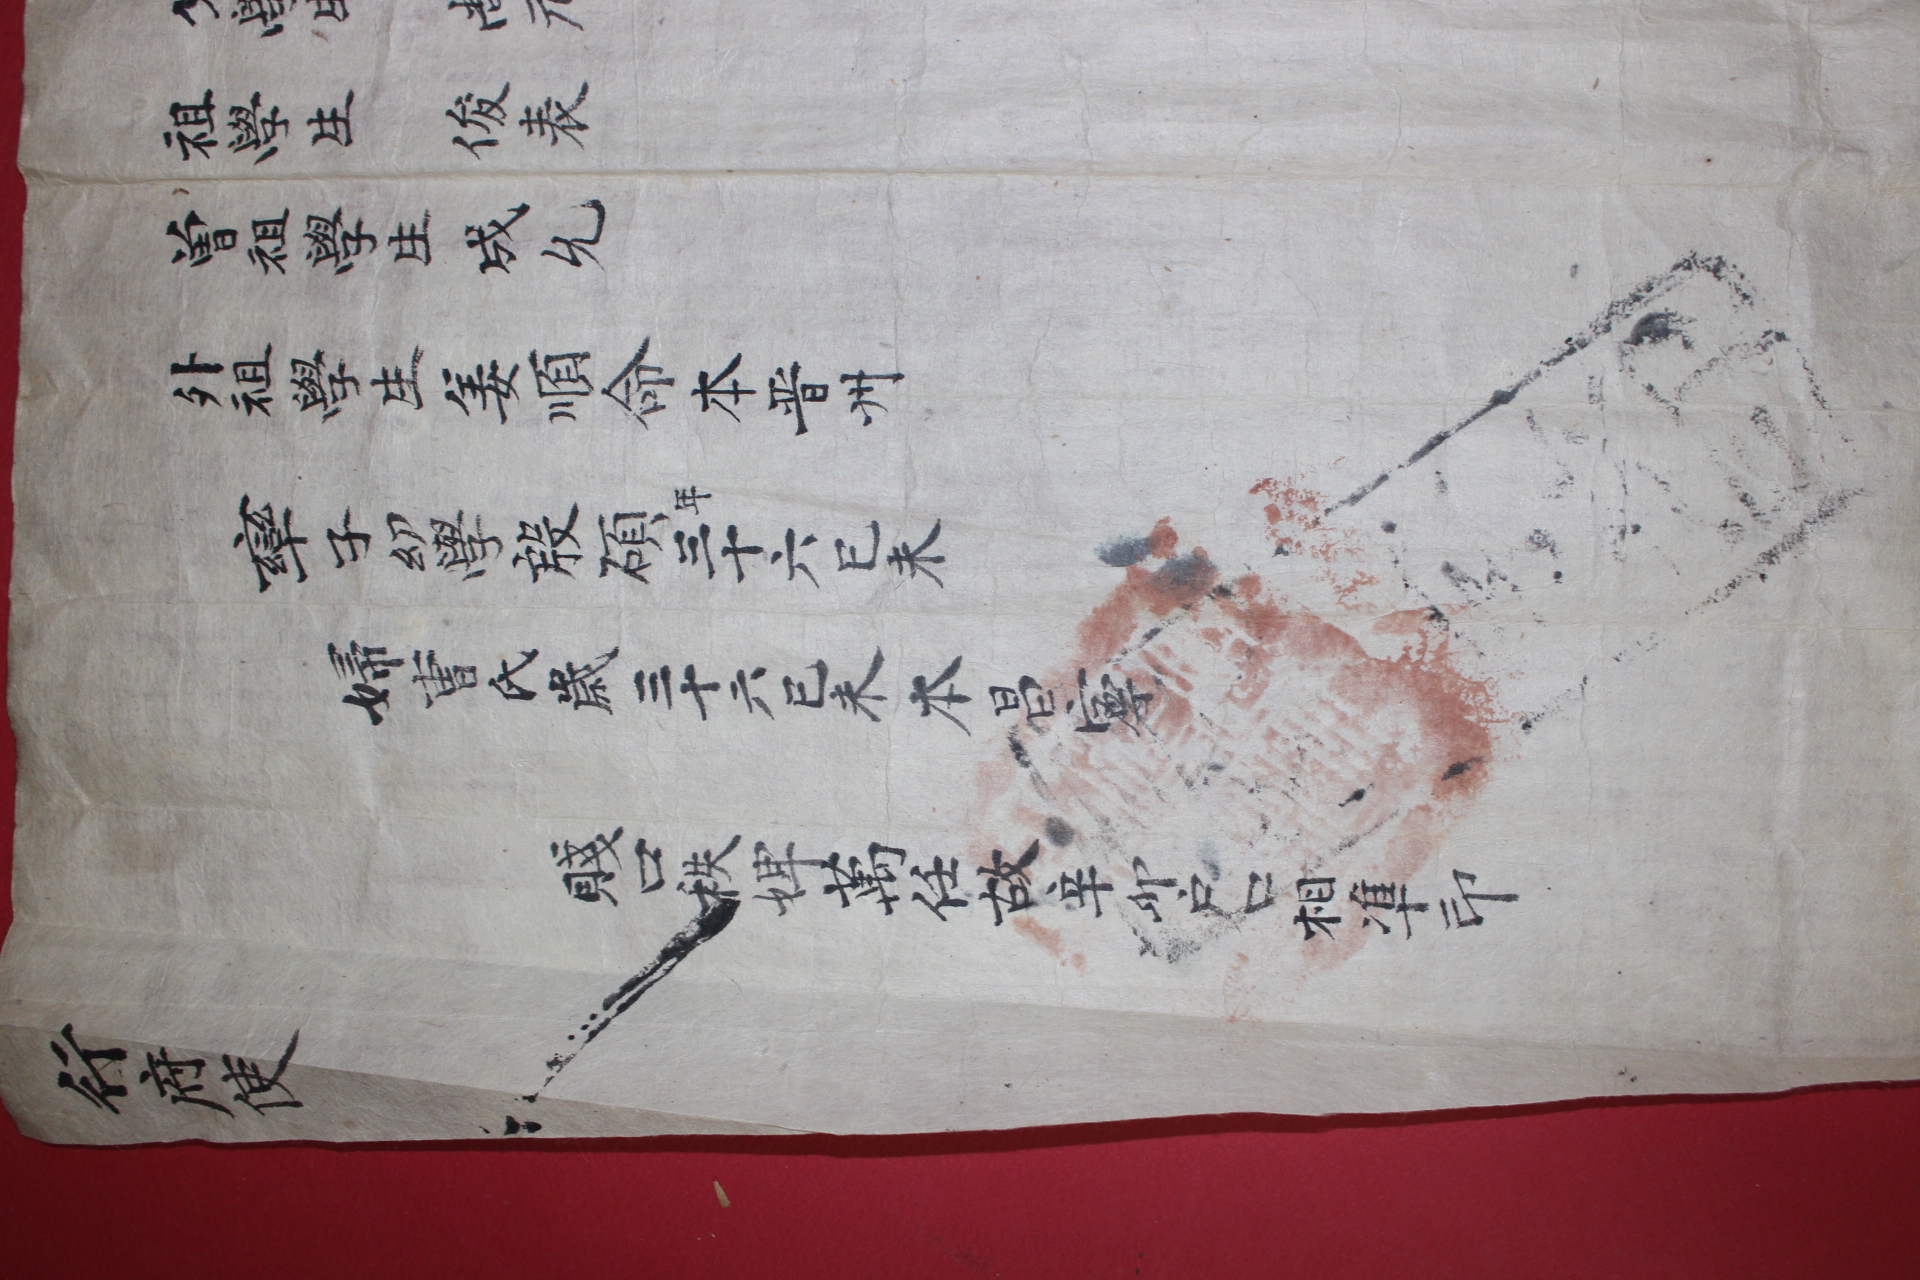 學生 尚元
祖學生 俊表
曾祖學生 成允
外祖學生姜順命本晋州
率子幼學殷碩年三十六己未
婦曺氏歲三十六己未本昌寧
賤口秩婢萬任故辛卯戶口相準印
行府使